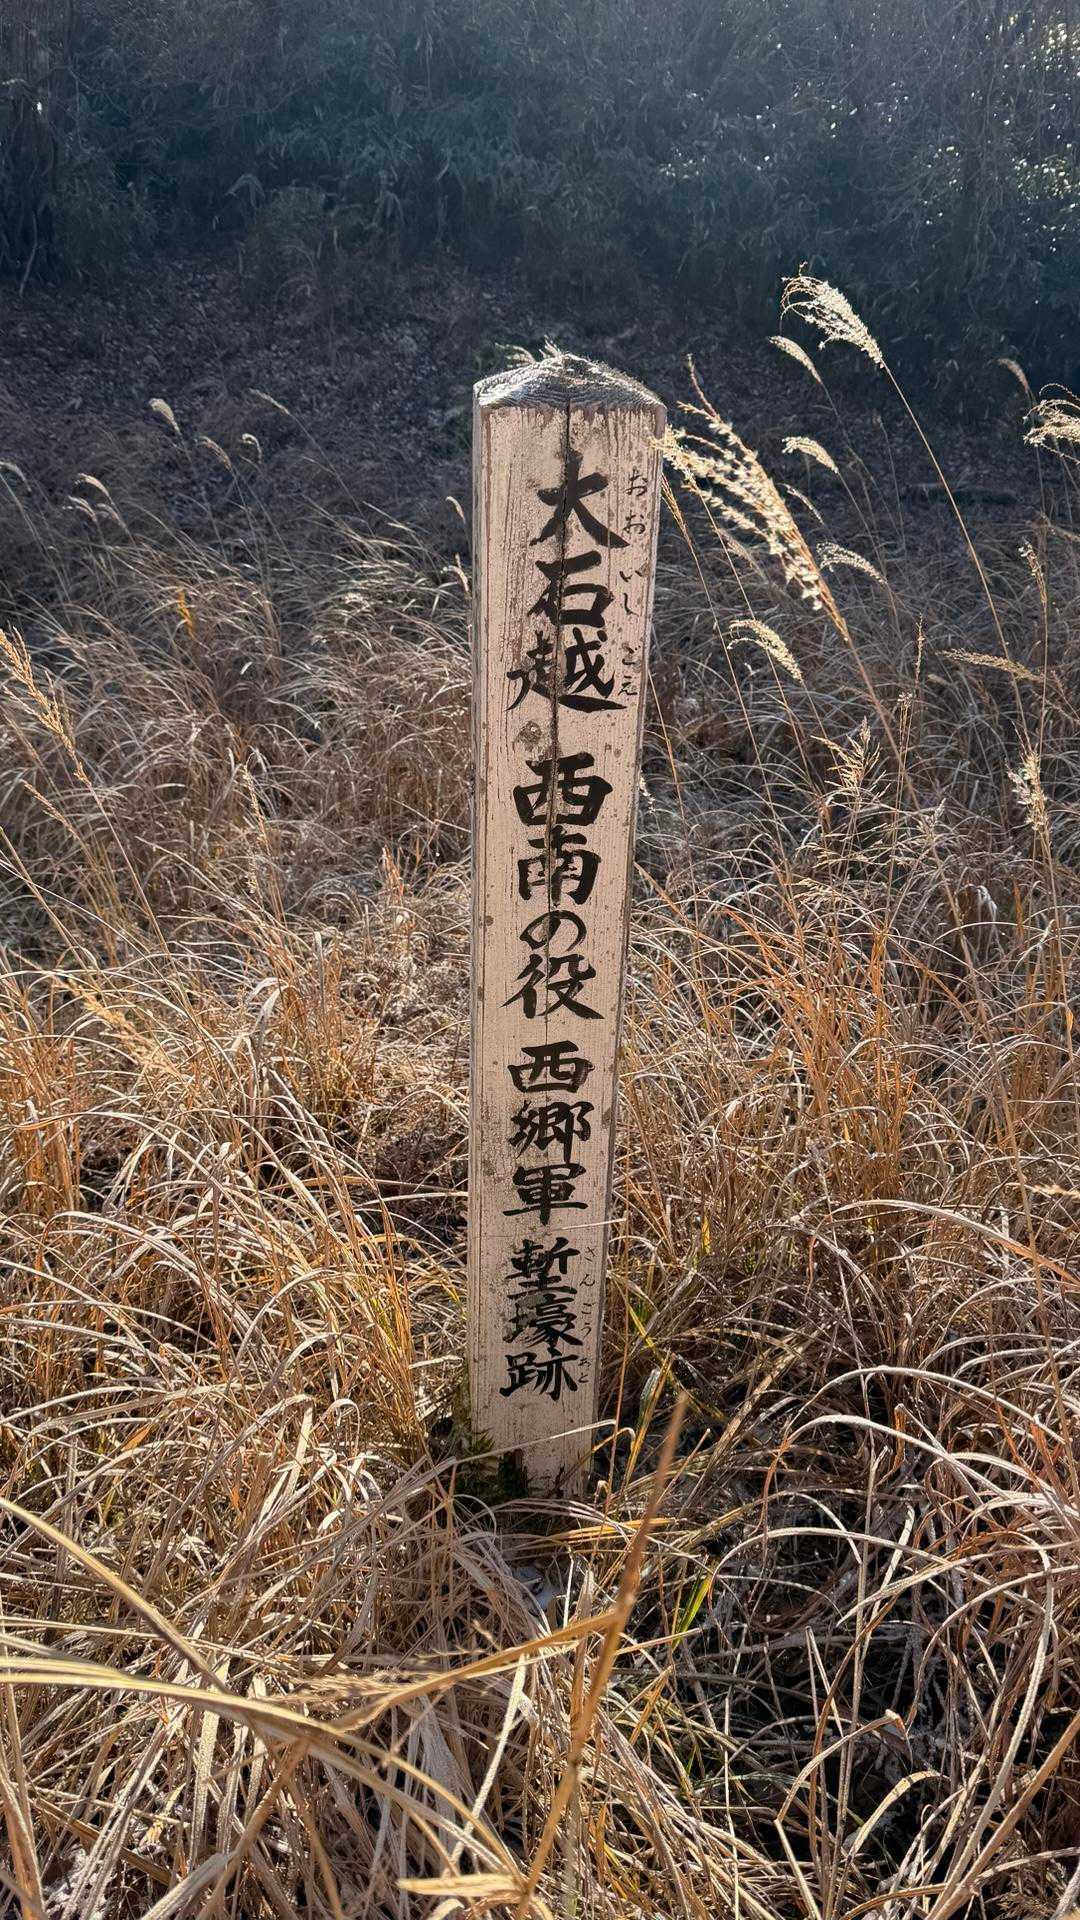 大石越 西南の役 西郷軍 塹壕跡
おおいしごえ
ざんごうあと